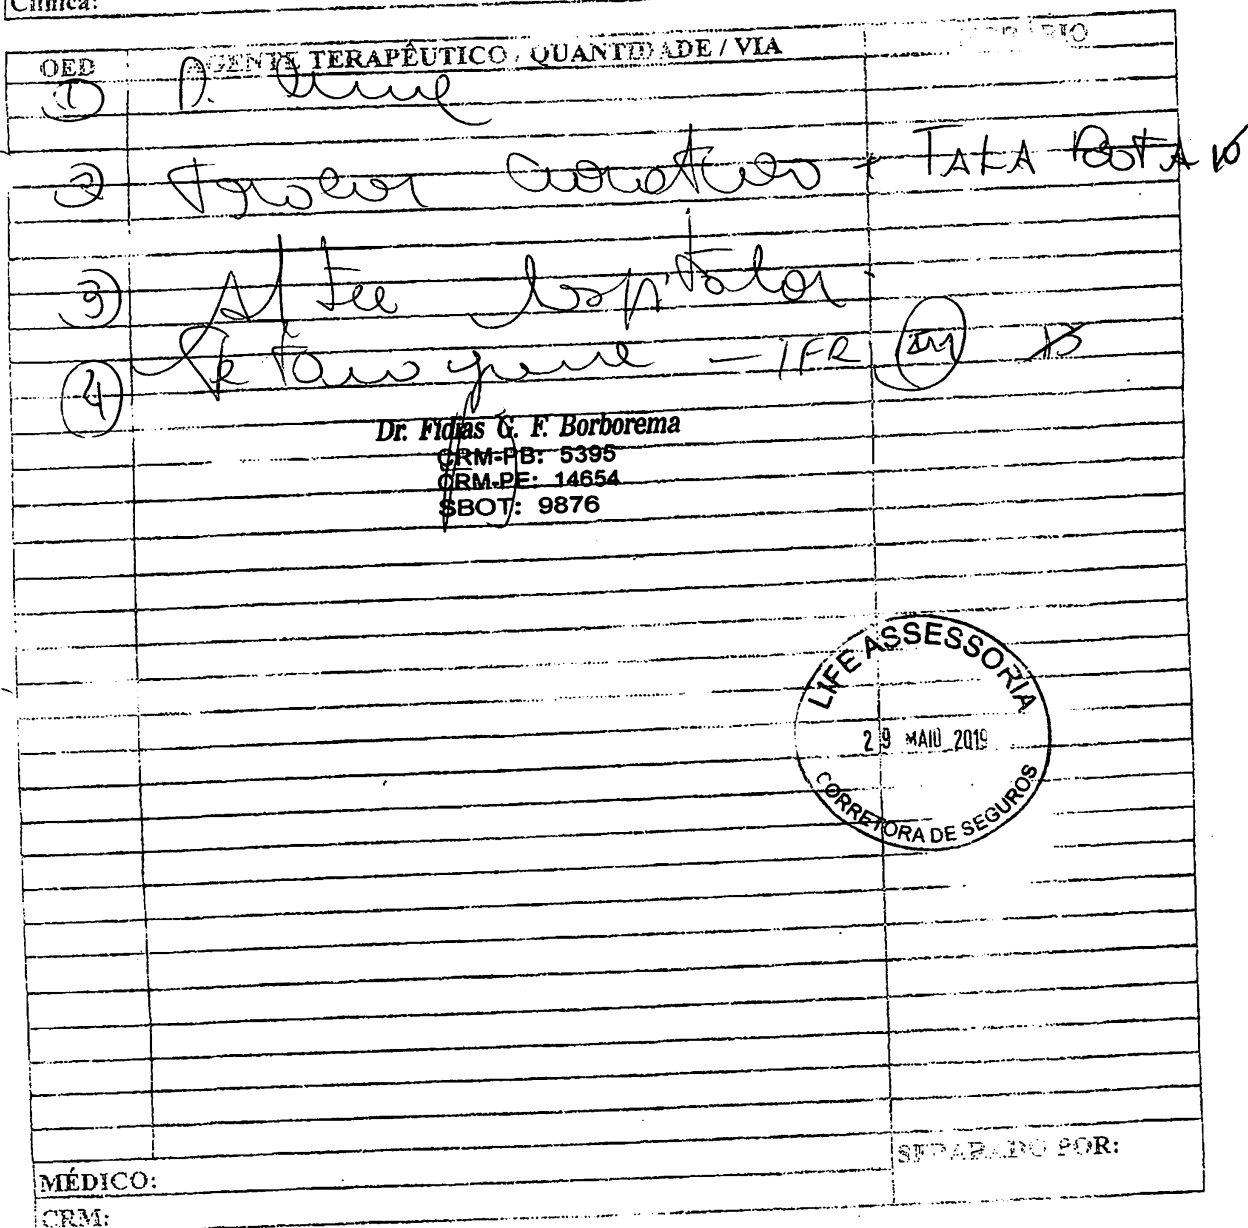 Clínica:
OED AGENTE TERAPÊUTICO / QUANTIDADE / VIA HORÁRIO
1 D.
2 Trocar curativo + TALA BOTA
3 Alta hospitalar
4 - 1 FR IM
Dr. Fidias G. F. Borborema
CRM-PB: 5395
CRM-PE: 14654
SBOT: 9876
LIFE ASSESSORIA
29 MAIO 2019
CORRETORA DE SEGUROS
SEPARADO POR:
MÉDICO:
CRM: